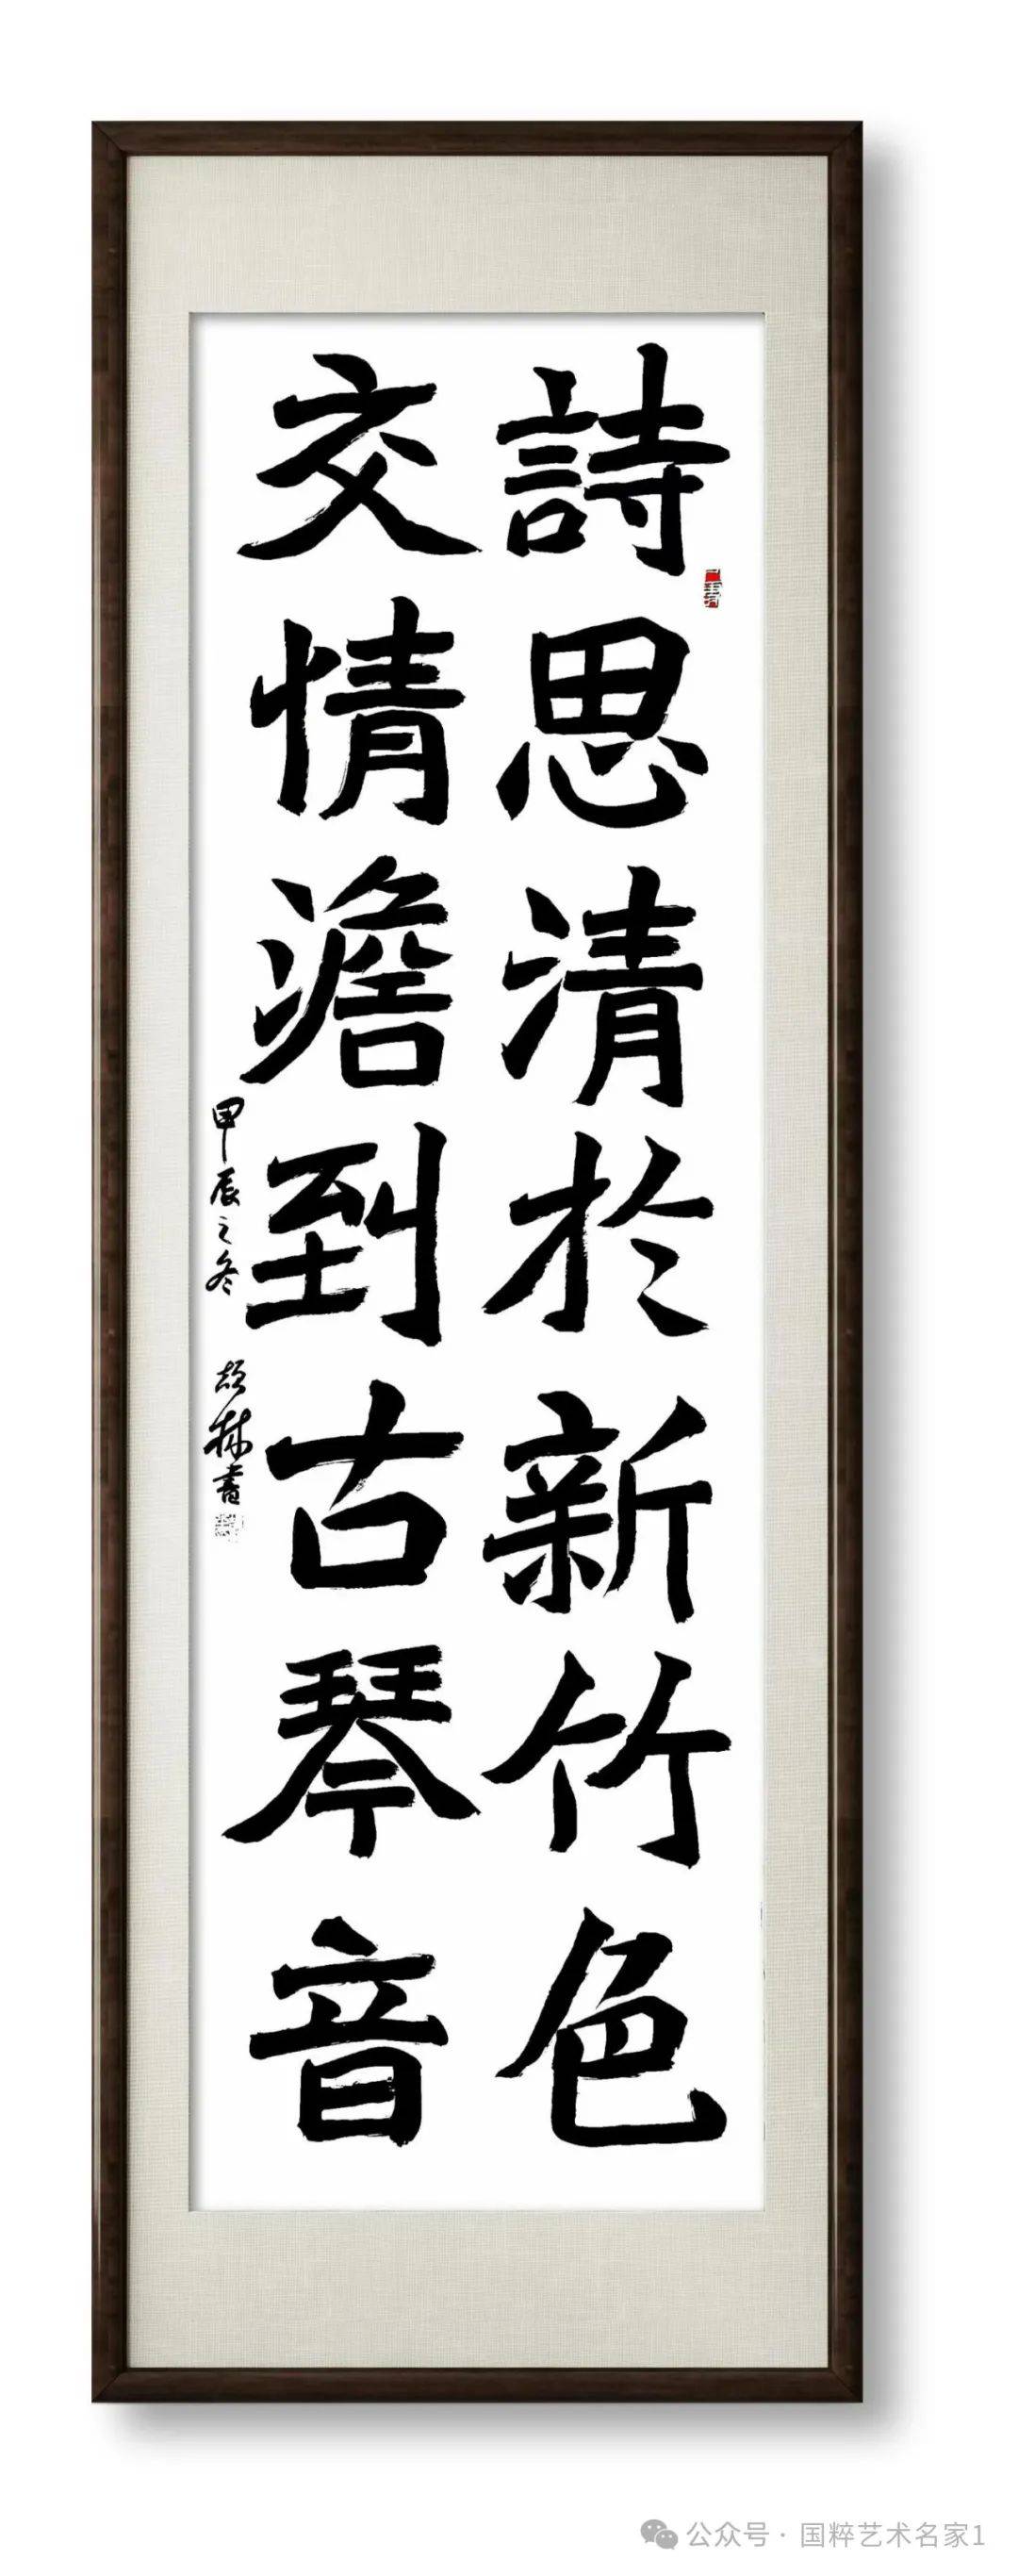 詩思清於新竹色
交情澹到古琴音
甲辰之冬
林書
公众号·国粹艺术名家1